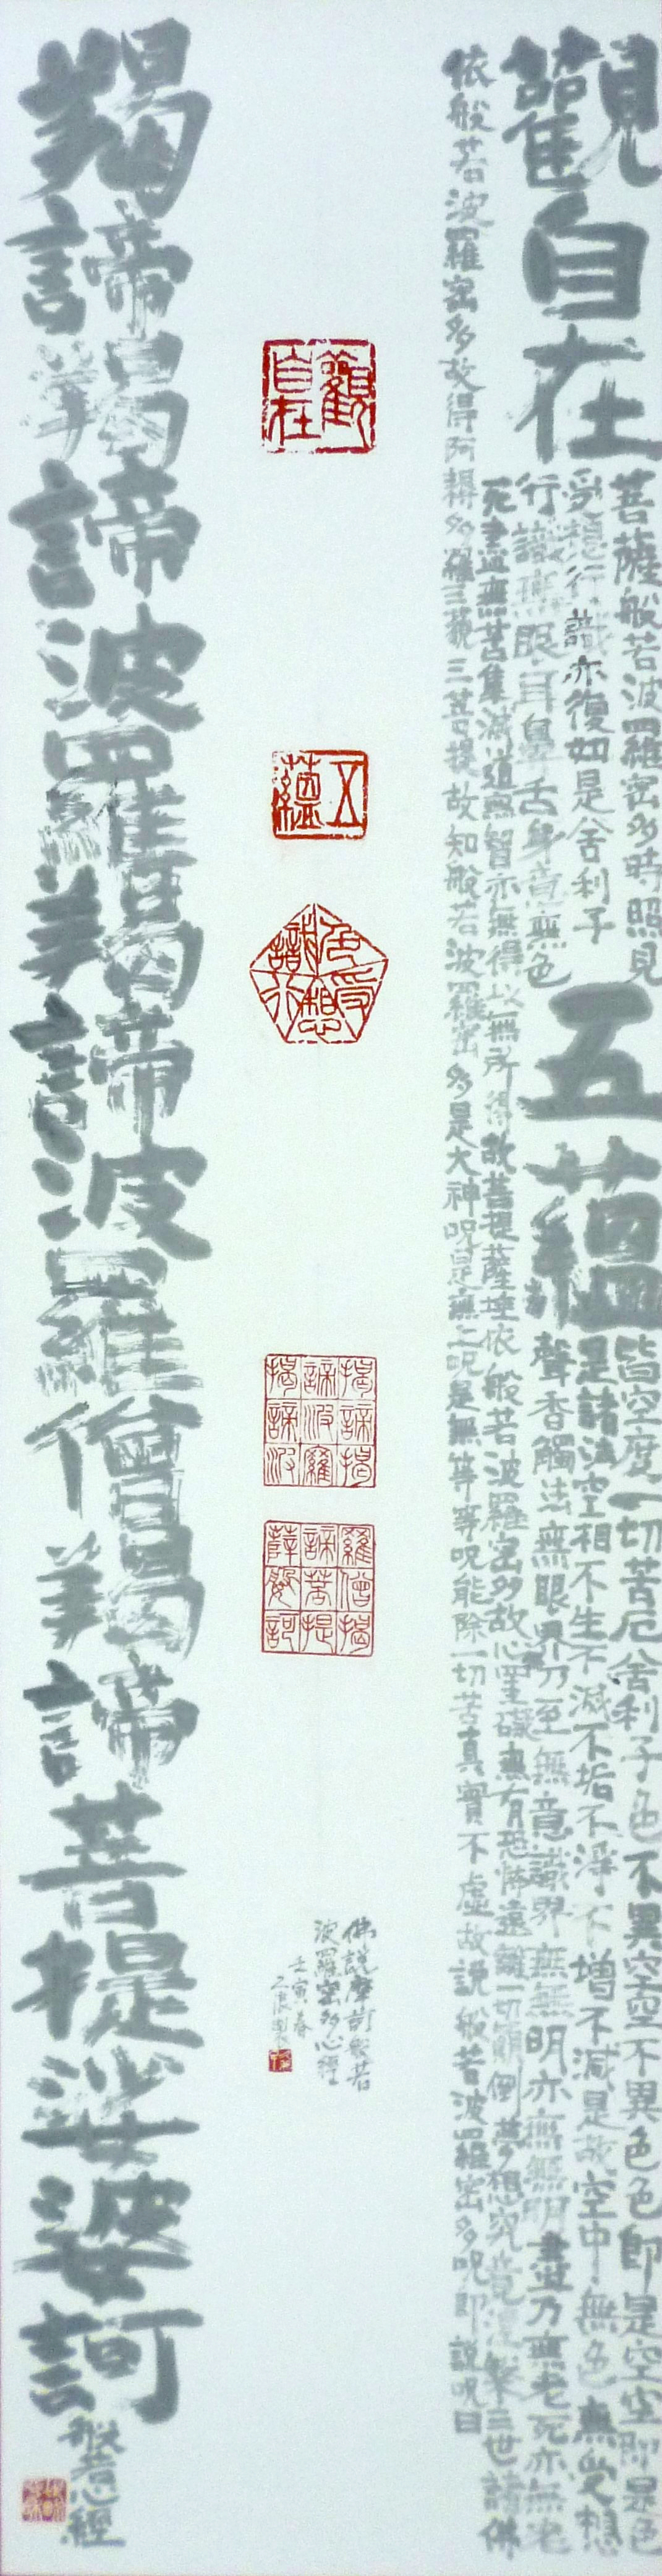 觀自在
菩薩般若波羅密多時照見
五蘊
皆空度一切苦厄舍利子色不異空空不異色色即是空空即是色
受想行識亦復如是舍利子
是諸法空相不生不滅不垢不淨不增不減是故空中無色無受想
行識無眼耳鼻舌身意無色
聲香觸法無眼界乃至無意識界無無明亦無無明盡乃無老死亦無老
死盡無苦集滅道無智亦無得以無所得故菩提薩埵依般若波羅密多故心罣礙無有恐怖遠離一切顛倒夢想究竟涅槃三世諸佛
依般若波羅密多故得阿耨多羅三藐三菩提故知般若波羅密多是大神呪是無上呪是無等等呪能除一切苦真實不虛故說般若波羅密多呪即說呪曰
觀自在
五蘊
色受想行識
揭諦揭
諦波羅
揭諦波
羅僧揭
諦菩提
薩婆訶
佛說摩訶般若
波羅密多心經
壬寅春
羯諦羯諦波羅羯諦波羅僧羯諦菩提娑婆訶
般若心經